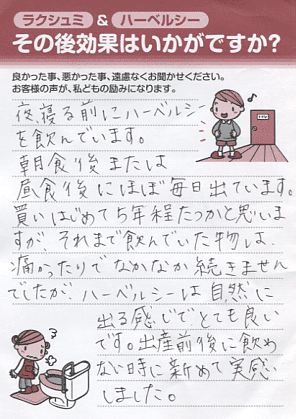 ラクシュミ & ハーベルシー
その後効果はいかがですか?
良かった事、悪かった事、遠慮なくお聞かせください。
お客様の声が、私どもの励みになります。
夜寝る前にハーベルシー
を飲んでいます。
朝食後または
昼食後にほぼ毎日出ています。
買いはじめて5年程たつかと思いま
すが、それまで飲んでいた物は、
痛かったりでなかなか続きません
でしたが、ハーベルシーは自然に
出る感じでとても良い
です。出産前後に飲め
ない時に新めて実感
しました。